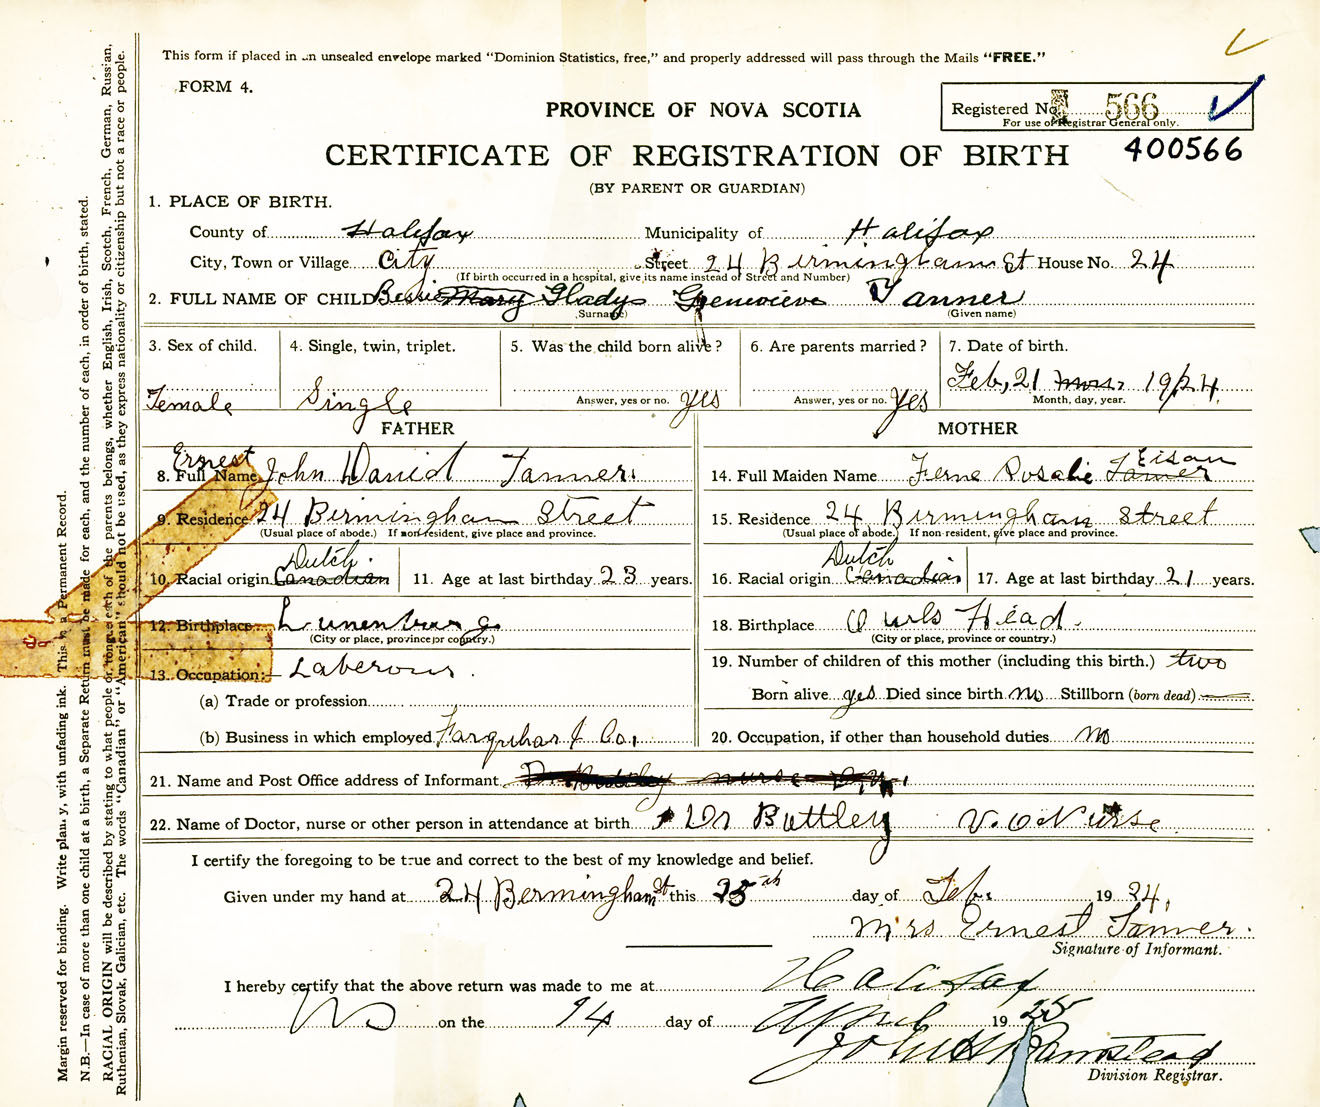 This form if placed in an unsealed envelope marked "Dominion Statistics, free," and properly addressed will pass through the Mails "FREE."
FORM 4.
Registered No. 566
For use of Registrar General only.
PROVINCE OF NOVA SCOTIA
400566
CERTIFICATE OF REGISTRATION OF BIRTH
(BY PARENT OR GUARDIAN)
1. PLACE OF BIRTH.
County of Halifax Municipality of Halifax
City, Town or Village City Street 24 Birmingham St House No. 24
(If birth occurred in a hospital, give its name instead of Street and Number)
2. FULL NAME OF CHILD Bessie Mary Gladys Genevieve Tanner
(Surname) (Given name)
3. Sex of child. 4. Single, twin, triplet. 5. Was the child born alive? 6. Are parents married? 7. Date of birth.
Feb, 21 1924
Female Single Answer, yes or no. yes Answer, yes or no. yes Month, day, year.
FATHER MOTHER
Ernest
8. Full Name John David Tanner
Eison
14. Full Maiden Name Ferne Rosalie Tanner
9. Residence 24 Birmingham Street
(Usual place of abode.) If non-resident, give place and province.
15. Residence 24 Birmingham Street
(Usual place of abode.) If non-resident, give place and province.
Dutch
10. Racial origin Canadian 11. Age at last birthday 23 years.
Dutch
16. Racial origin Canadian 17. Age at last birthday 21 years.
12. Birthplace Lunenburg
(City or place, province or country.)
18. Birthplace Owls Head.
(City or place, province or country.)
13. Occupation:— Laberour.
(a) Trade or profession
(b) Business in which employed Farquhar & Co.
19. Number of children of this mother (including this birth.) two
Born alive yes Died since birth no Stillborn (born dead) —
20. Occupation, if other than household duties no
21. Name and Post Office address of Informant
22. Name of Doctor, nurse or other person in attendance at birth Dr Buttley V.O Nurse
I certify the foregoing to be true and correct to the best of my knowledge and belief.
Given under my hand at 24 Bermingham St this 25th day of Feb. 1924.
Mrs Ernest Tanner.
Signature of Informant.
I hereby certify that the above return was made to me at Halifax
NS on the 14 day of April 1925
John H Ramstead
Division Registrar.
Margin reserved for binding. Write plainly, with unfading ink. This is a Permanent Record.
N.B.—In case of more than one child at a birth, a Separate Return must be made for each, and the number of each, in order of birth, stated.
RACIAL ORIGIN will be described by stating to what people or tongue each of the parents belongs, whether English, Irish, Scotch, French, German, Russian,
Ruthenian, Slovak, Galician, etc. The words "Canadian" or "American" should not be used, as they express nationality or citizenship but not a race or people.